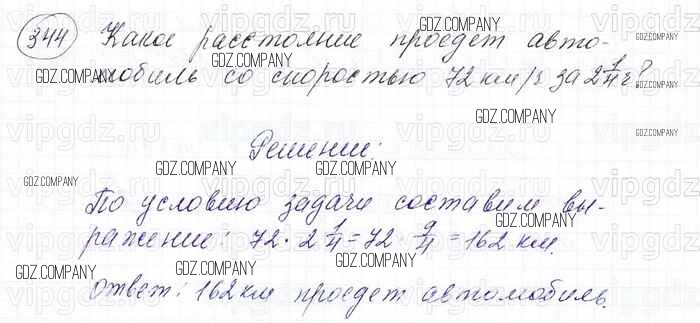 344 Какое расстояние проедет авто-
мобиль со скоростью 72 км/ч за 2 1/4 ч?
Решение:
По условию задачи составим вы-
ражение: 72 · 2 1/4 = 72 · 9/4 = 162 км.
ответ: 162 км проедет автомобиль.
GDZ.COMPANY
vipgdz.ru